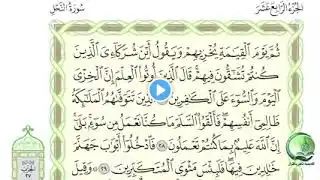 الجزء الرابع عشر
سورة النحل
ثُمَّ يَوْمَ الْقِيَٰمَةِ يُخْزِيهِمْ وَيَقُولُ أَيْنَ شُرَكَآءِىَ الَّذِينَ
كُنتُمْ تُشَٰٓقُّونَ فِيهِمْ قَالَ الَّذِينَ أُوتُوا۟ الْعِلْمَ إِنَّ الْخِزْىَ
الْيَوْمَ وَالسُّوٓءَ عَلَى الْكَٰفِرِينَ الَّذِينَ تَتَوَفَّىٰهُمُ الْمَلَٰٓئِكَةُ
ظَالِمِىٓ أَنفُسِهِمْ فَأَلْقَوُا۟ السَّلَمَ مَا كُنَّا نَعْمَلُ مِن سُوٓءٍ بَلَىٰٓ
إِنَّ اللَّهَ عَلِيمٌۢ بِمَا كُنتُمْ تَعْمَلُونَ ٢٨ فَادْخُلُوٓا۟ أَبْوَٰبَ جَهَنَّمَ
خَٰلِدِينَ فِيهَا فَلَبِئْسَ مَثْوَى الْمُتَكَبِّرِينَ ٢٩ وَقِيلَ
الحزب
٢٧